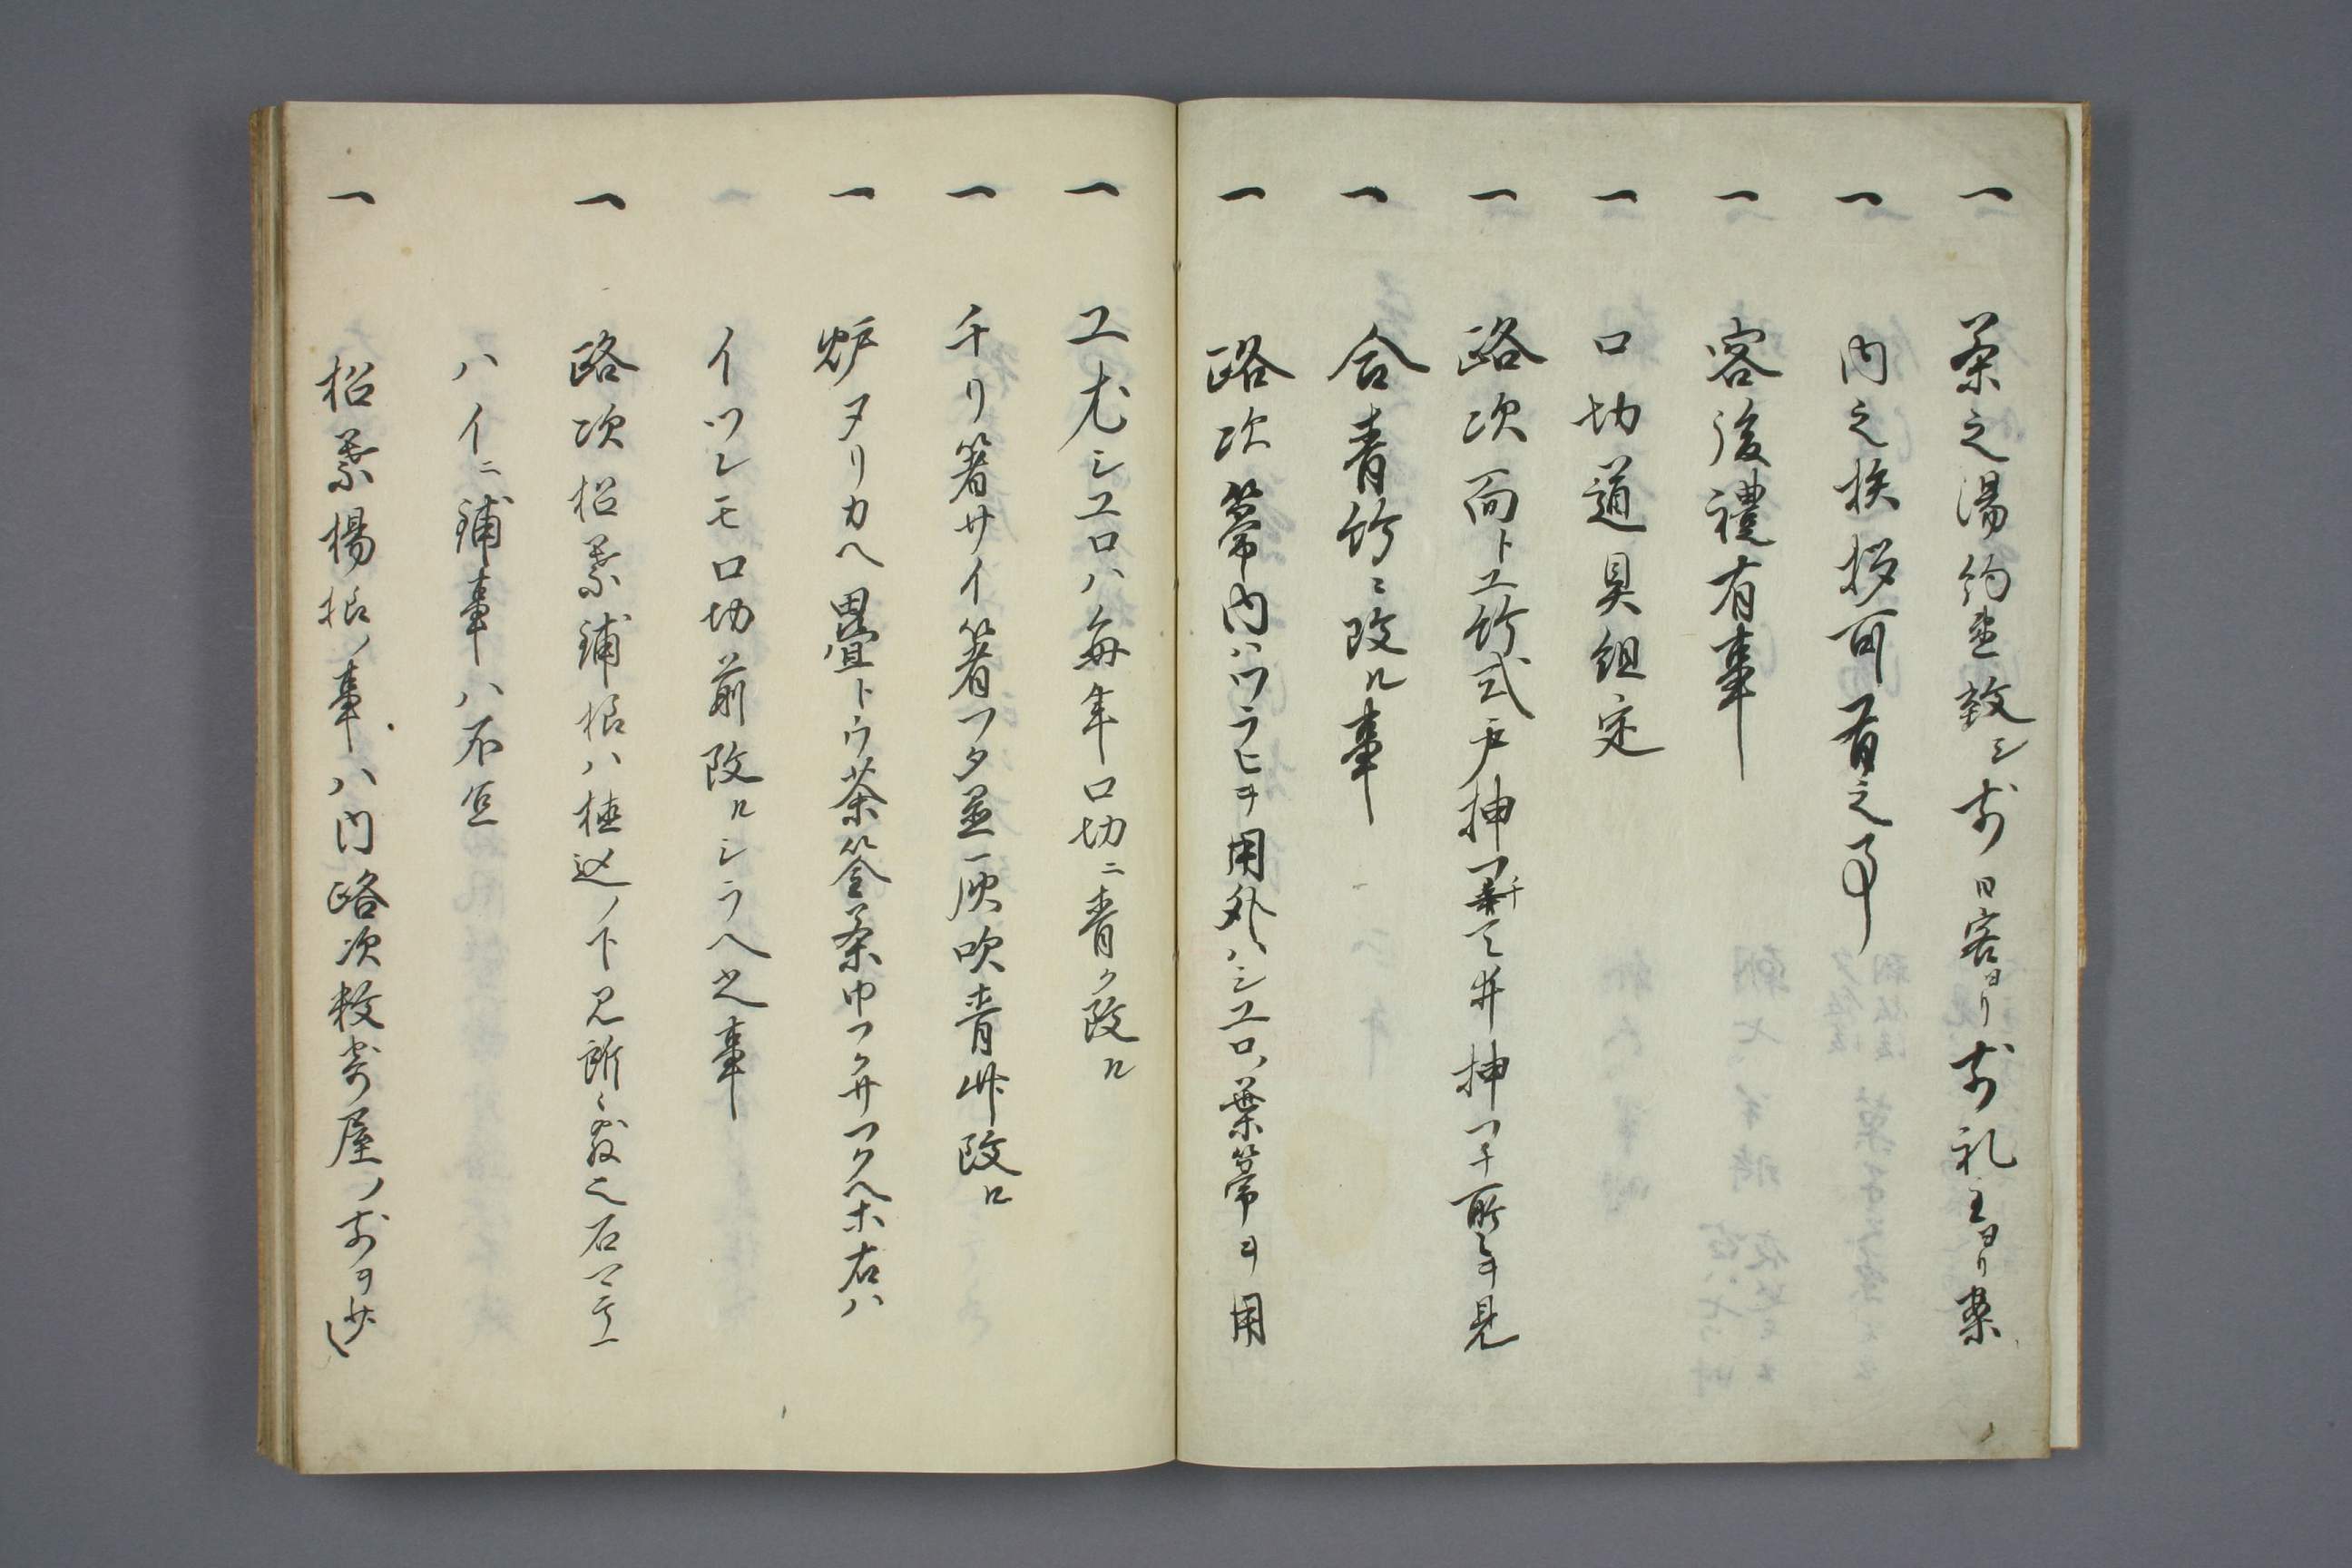 一 茶之湯約束致シ前日客ヨリ前礼主ヨリ案
一 内之挨拶可有之事
一 客後禮有事
一 口切道具組定
一 路次面ト ユ竹弐戸抻 井抻 所ヲ見
一 合青竹ニ改ル事
一 路次箒内ハワラヒヲ用外ハシユロノ葉箒ヲ用
一 ユ シユロハ毎年口切ニ青ク改ル
一 チリ箸サイ箸フタ置灰吹青竹改ル
一 炉ヌリカヘ畳トウ茶筌茶巾フクサ ホ右ハ
イツレモ口切前改ルシラヘ之事
一 路次松葉鋪様ハ植込ノ下見所ニ 石 
ハイニ鋪事ハ不宜
一 松葉揚様ノ事ハ内路次数寄屋ノ前ヲ少シ